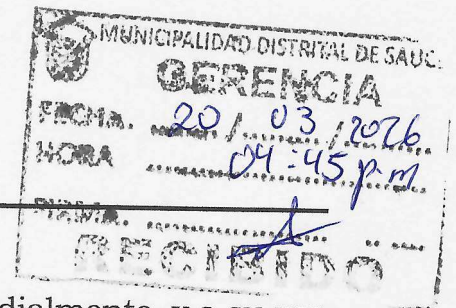 MUNICIPALIDAD DISTRITAL DE SAUC
GERENCIA
FECHA. 20 / 03 / 2026
HORA 04:45 p.m
FIRMA.
RECIBIDO